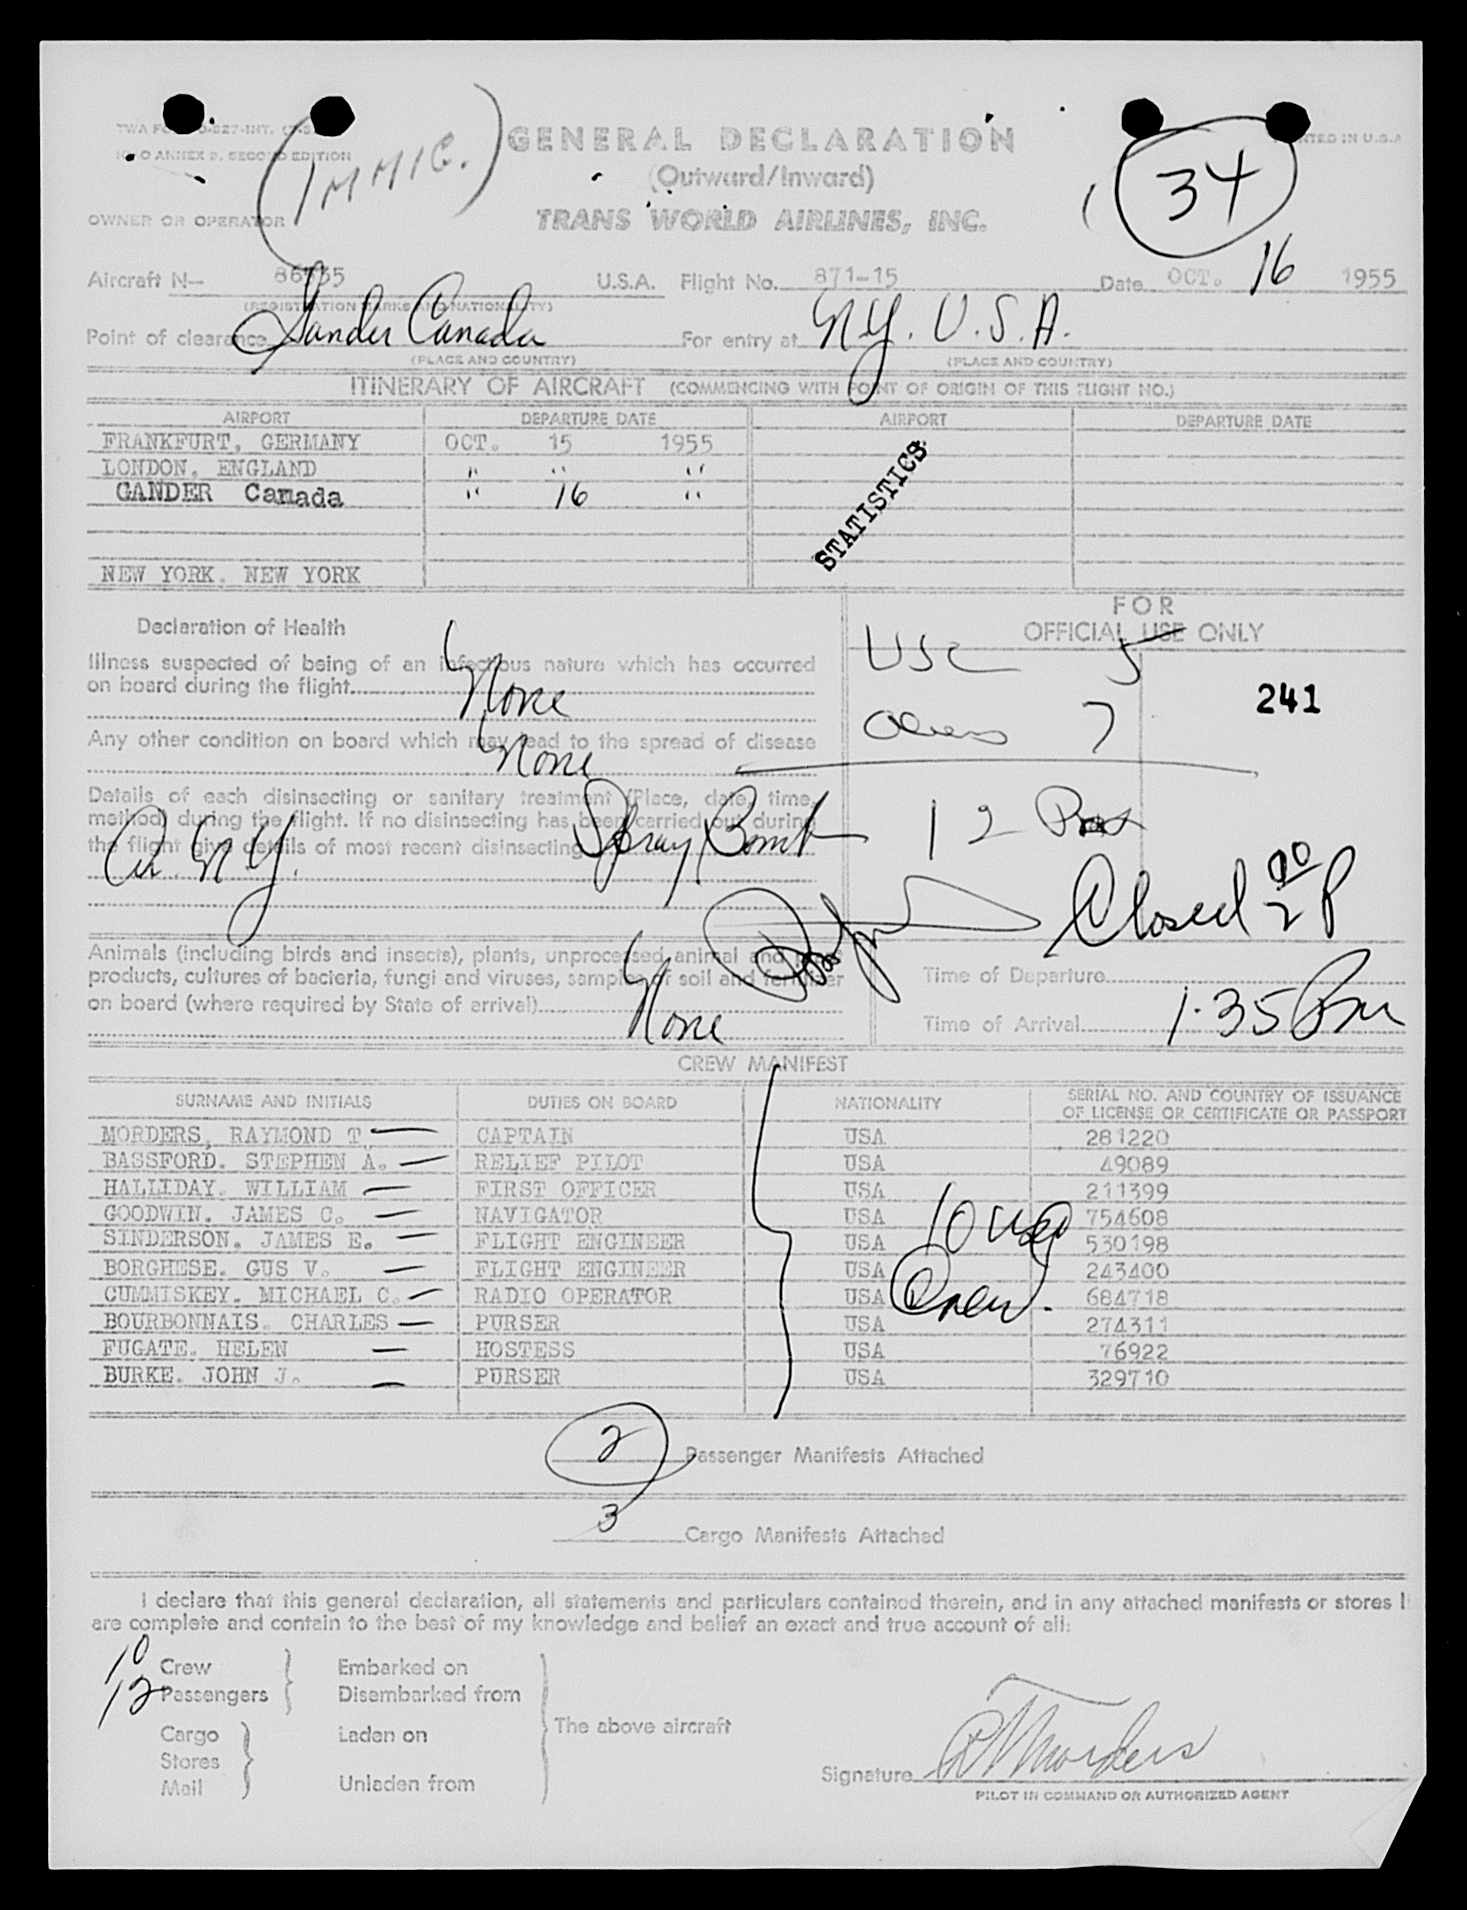 (IMMIG.)
GENERAL DECLARATION
(Outward/Inward)
34
EDITION
OWNER OR OPERATOR
TRANS WORLD AIRLINES, INC.
Aircraft N— U.S.A. Flight No. 871-15 Date OCT. 16 1955
(REGISTRATION MARKS AND NATIONALITY)
Point of clearance Gander Canada For entry at NY. U.S.A.
(PLACE AND COUNTRY) (PLACE AND COUNTRY)
ITINERARY OF AIRCRAFT (COMMENCING WITH POINT OF ORIGIN OF THIS FLIGHT NO.)
AIRPORT DEPARTURE DATE AIRPORT DEPARTURE DATE
FRANKFURT, GERMANY OCT. 15 1955
LONDON. ENGLAND " " "
GANDER Canada " 16 "
STATISTICS
NEW YORK. NEW YORK
FOR
OFFICIAL USE ONLY
Declaration of Health
Illness suspected of being of an infectious nature which has occurred
on board during the flight None
USC 5
241
Any other condition on board which may lead to the spread of disease
None
Aliens 7
Details of each disinsecting or sanitary treatment (Place, date, time,
method) during the flight. If no disinsecting has been carried out during
the flight give details of most recent disinsecting Spray Bomb
Ar. NY.
12 Pas
Closed 2 00 P
Animals (including birds and insects), plants, unprocessed animal and
products, cultures of bacteria, fungi and viruses, samples of soil and fertilizer
on board (where required by State of arrival) None
Time of Departure
Time of Arrival 1·35 Pm
CREW MANIFEST
SURNAME AND INITIALS DUTIES ON BOARD NATIONALITY SERIAL NO. AND COUNTRY OF ISSUANCE
OF LICENSE OR CERTIFICATE OR PASSPORT
MORDERS, RAYMOND T. CAPTAIN USA 281220
BASSFORD. STEPHEN A. RELIEF PILOT USA 49089
HALLIDAY. WILLIAM FIRST OFFICER USA 211399
GOODWIN. JAMES C. NAVIGATOR USA 754608
SINDERSON. JAMES E. FLIGHT ENGINEER USA 530198
BORGHESE. GUS V. FLIGHT ENGINEER USA 243400
CUMMISKEY. MICHAEL C. RADIO OPERATOR USA 684718
BOURBONNAIS. CHARLES PURSER USA 274311
FUGATE. HELEN HOSTESS USA 76922
BURKE. JOHN J. PURSER USA 329710
10 USC
Crew.
2 Passenger Manifests Attached
3 Cargo Manifests Attached
I declare that this general declaration, all statements and particulars contained therein, and in any attached manifests or stores
are complete and contain to the best of my knowledge and belief an exact and true account of all:
10 Crew Embarked on
12 Passengers Disembarked from
The above aircraft
Cargo Laden on
Stores
Mail Unladen from
Signature R T Morders
PILOT IN COMMAND OR AUTHORIZED AGENT